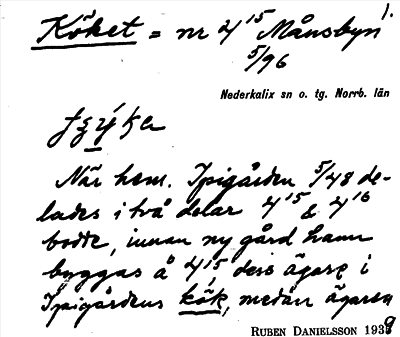 1.
Köket = nr 4¹⁵ Månsbyn
5/96
Nederkalix sn o. tg. Norrb. län
När hem. Ipigården 5/48 de-
lades i två delar 4¹⁵ & 4¹⁶
bodde, innan ny gård hann
byggas å 4¹⁵, dess ägare i
Ipigårdens kök, medan ägaren
RUBEN DANIELSSON 1939